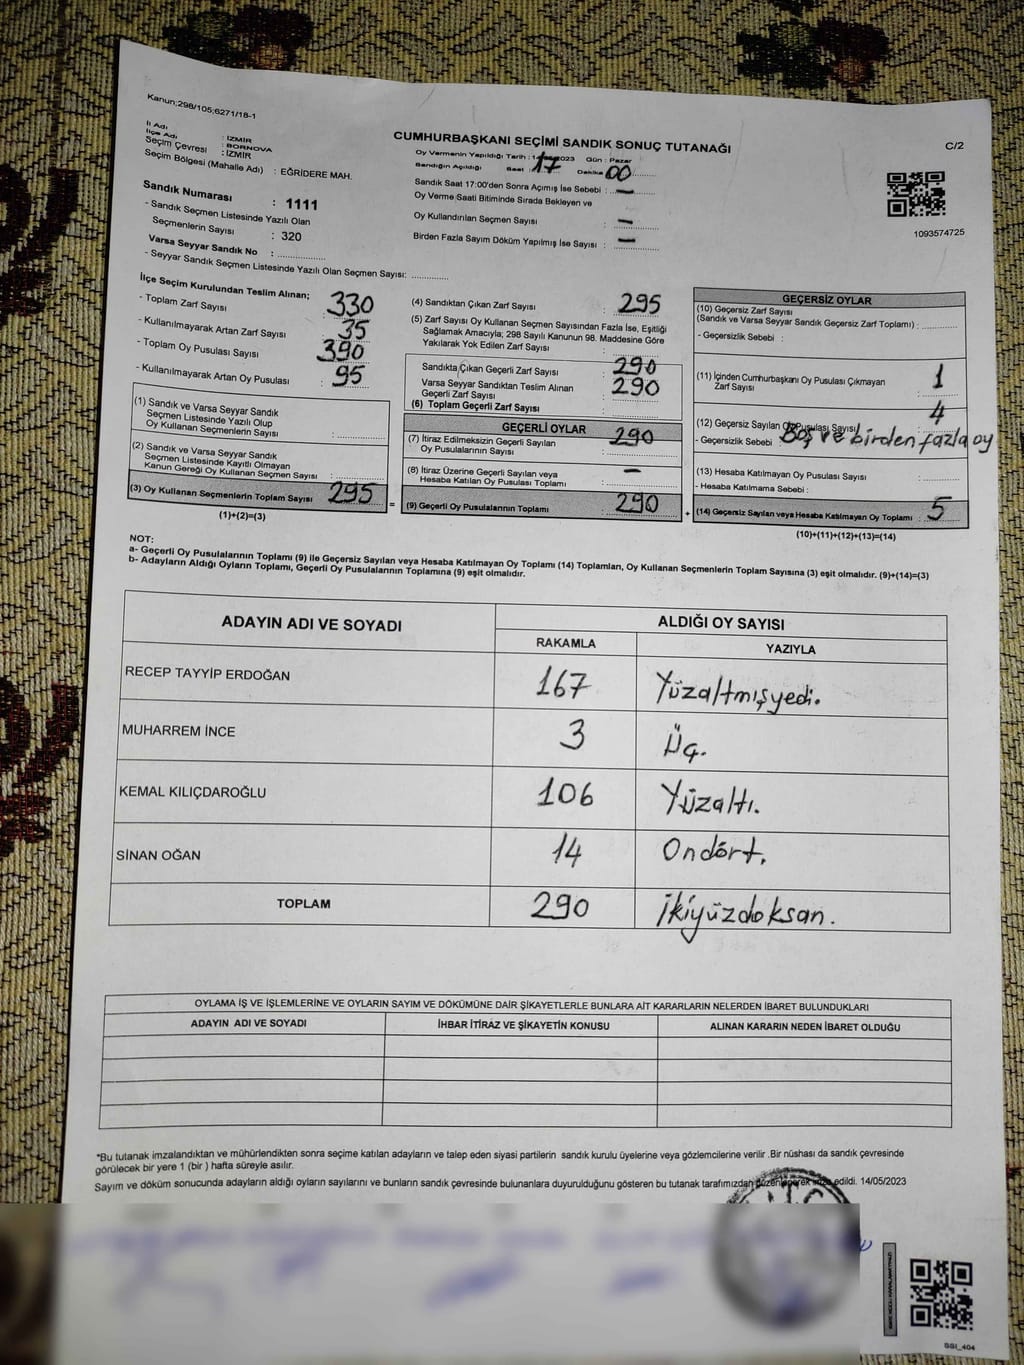 Kanun;298/105;6271/18-1
İl Adı : İZMİR
İlçe Adı : BORNOVA
Seçim Çevresi : İZMİR
Seçim Bölgesi (Mahalle Adı) : EĞRİDERE MAH.
CUMHURBAŞKANI SEÇİMİ SANDIK SONUÇ TUTANAĞI
C/2
Oy Vermenin Yapıldığı Tarih : 14 2023 Gün : Pazar
Sandığın Açıldığı Saat : 17 Dakika : 00
Sandık Saat 17:00'den Sonra Açımış İse Sebebi : —
Oy Verme Saati Bitiminde Sırada Bekleyen ve
Oy Kullandırılan Seçmen Sayısı : —
Birden Fazla Sayım Döküm Yapılmış İse Sayısı : —
1093574725
Sandık Numarası : 1111
- Sandık Seçmen Listesinde Yazılı Olan
Seçmenlerin Sayısı : 320
Varsa Seyyar Sandık No : ..............
- Seyyar Sandık Seçmen Listesinde Yazılı Olan Seçmen Sayısı: ............
İlçe Seçim Kurulundan Teslim Alınan;
- Toplam Zarf Sayısı : 330
- Kullanılmayarak Artan Zarf Sayısı : 35
- Toplam Oy Pusulası Sayısı : 390
- Kullanılmayarak Artan Oy Pusulası : 95
(1) Sandık ve Varsa Seyyar Sandık
Seçmen Listesinde Yazılı Olup
Oy Kullanan Seçmenlerin Sayısı : ..............
(2) Sandık ve Varsa Seyyar Sandık
Seçmen Listesinde Kayıtlı Olmayan
Kanun Gereği Oy Kullanan Seçmen Sayısı : ..............
(3) Oy Kullanan Seçmenlerin Toplam Sayısı : 295 =
(1)+(2)=(3)
(4) Sandıktan Çıkan Zarf Sayısı : 295
(5) Zarf Sayısı Oy Kullanan Seçmen Sayısından Fazla İse, Eşitliği
Sağlamak Amacıyla; 298 Sayılı Kanunun 98. Maddesine Göre
Yakılarak Yok Edilen Zarf Sayısı : ..............
Sandıkta Çıkan Geçerli Zarf Sayısı : 290
Varsa Seyyar Sandıktan Teslim Alınan
Geçerli Zarf Sayısı : 290
(6) Toplam Geçerli Zarf Sayısı : ..............
GEÇERLİ OYLAR
(7) İtiraz Edilmeksizin Geçerli Sayılan
Oy Pusulasının Sayısı : 290
(8) İtiraz Üzerine Geçerli Sayılan veya
Hesaba Katılan Oy Pusulası Toplamı : —
(9) Geçerli Oy Pusulalarının Toplamı : 290 +
GEÇERSİZ OYLAR
(10) Geçersiz Zarf Sayısı
(Sandık ve Varsa Seyyar Sandık Geçersiz Zarf Toplamı) : ............
- Geçersizlik Sebebi :
(11) İçinden Cumhurbaşkanı Oy Pusulası Çıkmayan
Zarf Sayısı : 1
(12) Geçersiz Sayılan Oy Pusulası Sayısı : 4
- Geçersizlik Sebebi Boş ve birden fazla oy
(13) Hesaba Katılmayan Oy Pusulası Sayısı : ............
- Hesaba Katılmama Sebebi :
(14) Geçersiz Sayılan veya Hesaba Katılmayan Oy Toplamı : 5
(10)+(11)+(12)+(13)=(14)
NOT:
a- Geçerli Oy Pusulalarının Toplamı (9) ile Geçersiz Sayılan veya Hesaba Katılmayan Oy Toplamı (14) Toplamları, Oy Kullanan Seçmenlerin Toplam Sayısına (3) eşit olmalıdır. (9)+(14)=(3)
b- Adayların Aldığı Oyların Toplamı, Geçerli Oy Pusulalarının Toplamına (9) eşit olmalıdır.
ADAYIN ADI VE SOYADI
ALDIĞI OY SAYISI
RAKAMLA YAZIYLA
RECEP TAYYİP ERDOĞAN 167 Yüzaltmışyedi.
MUHARREM İNCE 3 Üç.
KEMAL KILIÇDAROĞLU 106 Yüzaltı.
SİNAN OĞAN 14 Ondört.
TOPLAM 290 İkiyüzdoksan.
OYLAMA İŞ VE İŞLEMLERİNE VE OYLARIN SAYIM VE DÖKÜMÜNE DAİR ŞİKAYETLERLE BUNLARA AİT KARARLARIN NELERDEN İBARET BULUNDUKLARI
ADAYIN ADI VE SOYADI İHBAR İTİRAZ VE ŞİKAYETİN KONUSU ALINAN KARARIN NEDEN İBARET OLDUĞU
*Bu tutanak imzalandıktan ve mühürlendikten sonra seçime katılan adayların ve talep eden siyasi partilerin sandık kurulu üyelerine veya gözlemcilerine verilir .Bir nüshası da sandık çevresinde
görülecek bir yere 1 (bir ) hafta süreyle asılır.
Sayım ve döküm sonucunda adayların aldığı oyların sayılarını ve bunların sandık çevresinde bulunanlara duyurulduğunu gösteren bu tutanak tarafımızdan düzenlenerek imza edildi. 14/05/2023
SSI_404